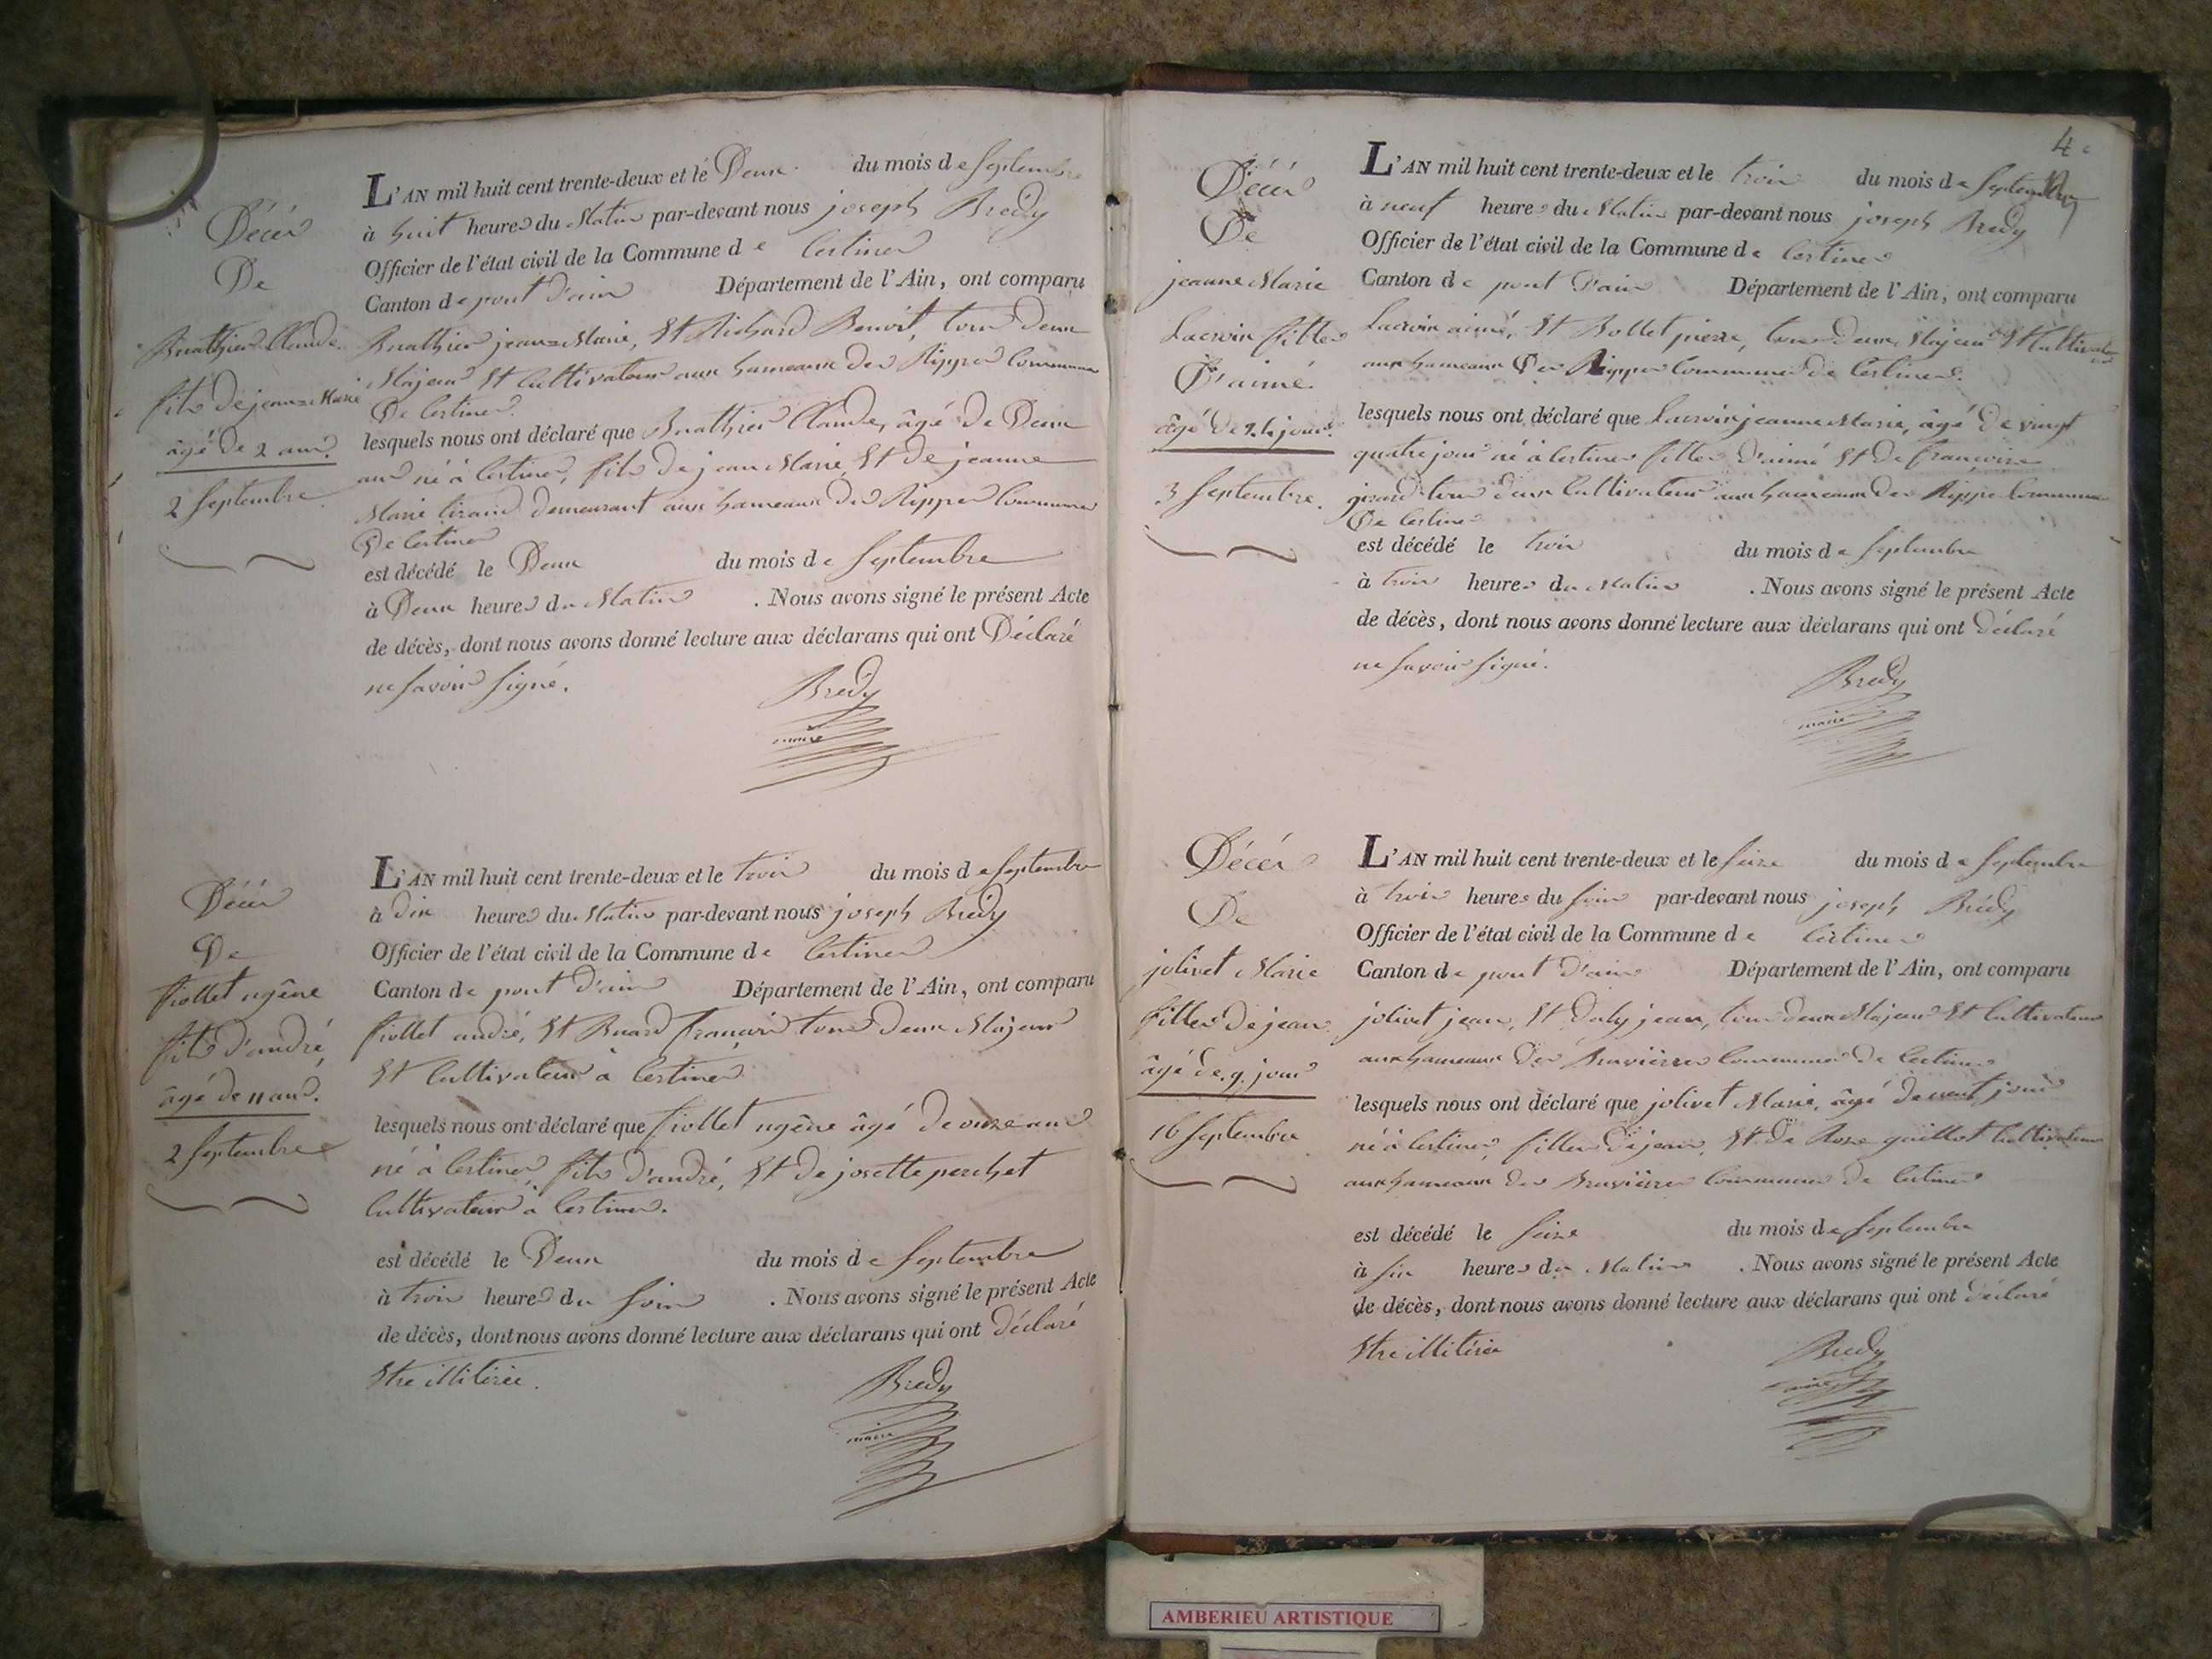 Décès
De
Buathier Claude
fils de jean=Marie
âgé de 2 ans.
2 Septembre
L'AN mil huit cent trente-deux et le Deux du mois de Septembre
à huit heures du Matin par-devant nous joseph Bredy
Officier de l'état civil de la Commune de Certines
Canton de pont d'ain Département de l'Ain, ont comparu
Buathier jean=Marie, Et Richard Benoit, tous deux
Majeurs Et Cultivateurs aux hameaux des Rippes Commune
De Certines.
lesquels nous ont déclaré que Buathier Claude, âgé de Deux
ans né à Certines, fils de jean Marie Et de jeanne
Marie demeurant aux hameaux des Rippes Commune
De Certines
est décédé le Deux du mois de Septembre
à Deux heures du Matin . Nous avons signé le présent Acte
de décès, dont nous avons donné lecture aux déclarans qui ont Déclaré
ne savoir signé.
Bredy
maire
Décès
De
fiollet ugêne
fils d'andré,
âgé de 11 ans.
2 Septembre
L'AN mil huit cent trente-deux et le trois du mois de Septembre
à dix heures du Matin par-devant nous joseph Bredy
Officier de l'état civil de la Commune de Certines
Canton de pont d'ain Département de l'Ain, ont comparu
fiollet andré, Et Buard françois tous deux Majeurs
Et Cultivateurs à Certines
lesquels nous ont déclaré que fiollet ugêne âgé de onze ans
né à Certines, fils d'andré, Et de josette perchet
Cultivateurs à Certines.
est décédé le Deux du mois de Septembre
à trois heures du Soir . Nous avons signé le présent Acte
de décès, dont nous avons donné lecture aux déclarans qui ont Déclaré
Etre illitérée.
Bredy
maire
Décès
De
jeanne Marie
Lacroix filles
D'aimé.
âgé de 24 jours.
3 Septembre.
L'AN mil huit cent trente-deux et le trois du mois de Septembre
à neuf heures du Matin par-devant nous joseph Bredy
Officier de l'état civil de la Commune de Certines
Canton de pont d'ain Département de l'Ain, ont comparu
Lacroix aimé, Et Bollet pierre, tous deux Majeurs Et Cultivateurs
aux hameaux Des Rippes Commune de Certines.
lesquels nous ont déclaré que Lacroix jeanne Marie, âgé de vingt
quatre jours né à Certines filles d'aimé Et de françoise
girard tous deux Cultivateurs aux hameaux des Rippes Commune
De Certines
est décédé le trois du mois de Septembre
à trois heures du Matin . Nous avons signé le présent Acte
de décès, dont nous avons donné lecture aux déclarans qui ont déclaré
ne savoir signé.
Bredy
maire
Décès
De
jolivet Marie
filles de jean
âgé de 9. jours
16 Septembre
L'AN mil huit cent trente-deux et le Seize du mois de Septembre
à trois heures du soir par-devant nous joseph Bredy
Officier de l'état civil de la Commune de Certines
Canton de pont d'ain Département de l'Ain, ont comparu
jolivet jean, Et Daly jean, tous deux Majeurs Et Cultivateurs
aux hameaux Des Bruvières Commune de Certines
lesquels nous ont déclaré que jolivet Marie, âgé de neuf jours
né à Certines, filles de jean, Et de Rose guillot Cultivateurs
aux hameaux des Bruvières Commune De Certines
est décédé le Seize du mois de Septembre
à six heures du Matin . Nous avons signé le présent Acte
de décès, dont nous avons donné lecture aux déclarans qui ont déclaré
Etre illitérée
Bredy
maire
AMBERIEU ARTISTIQUE